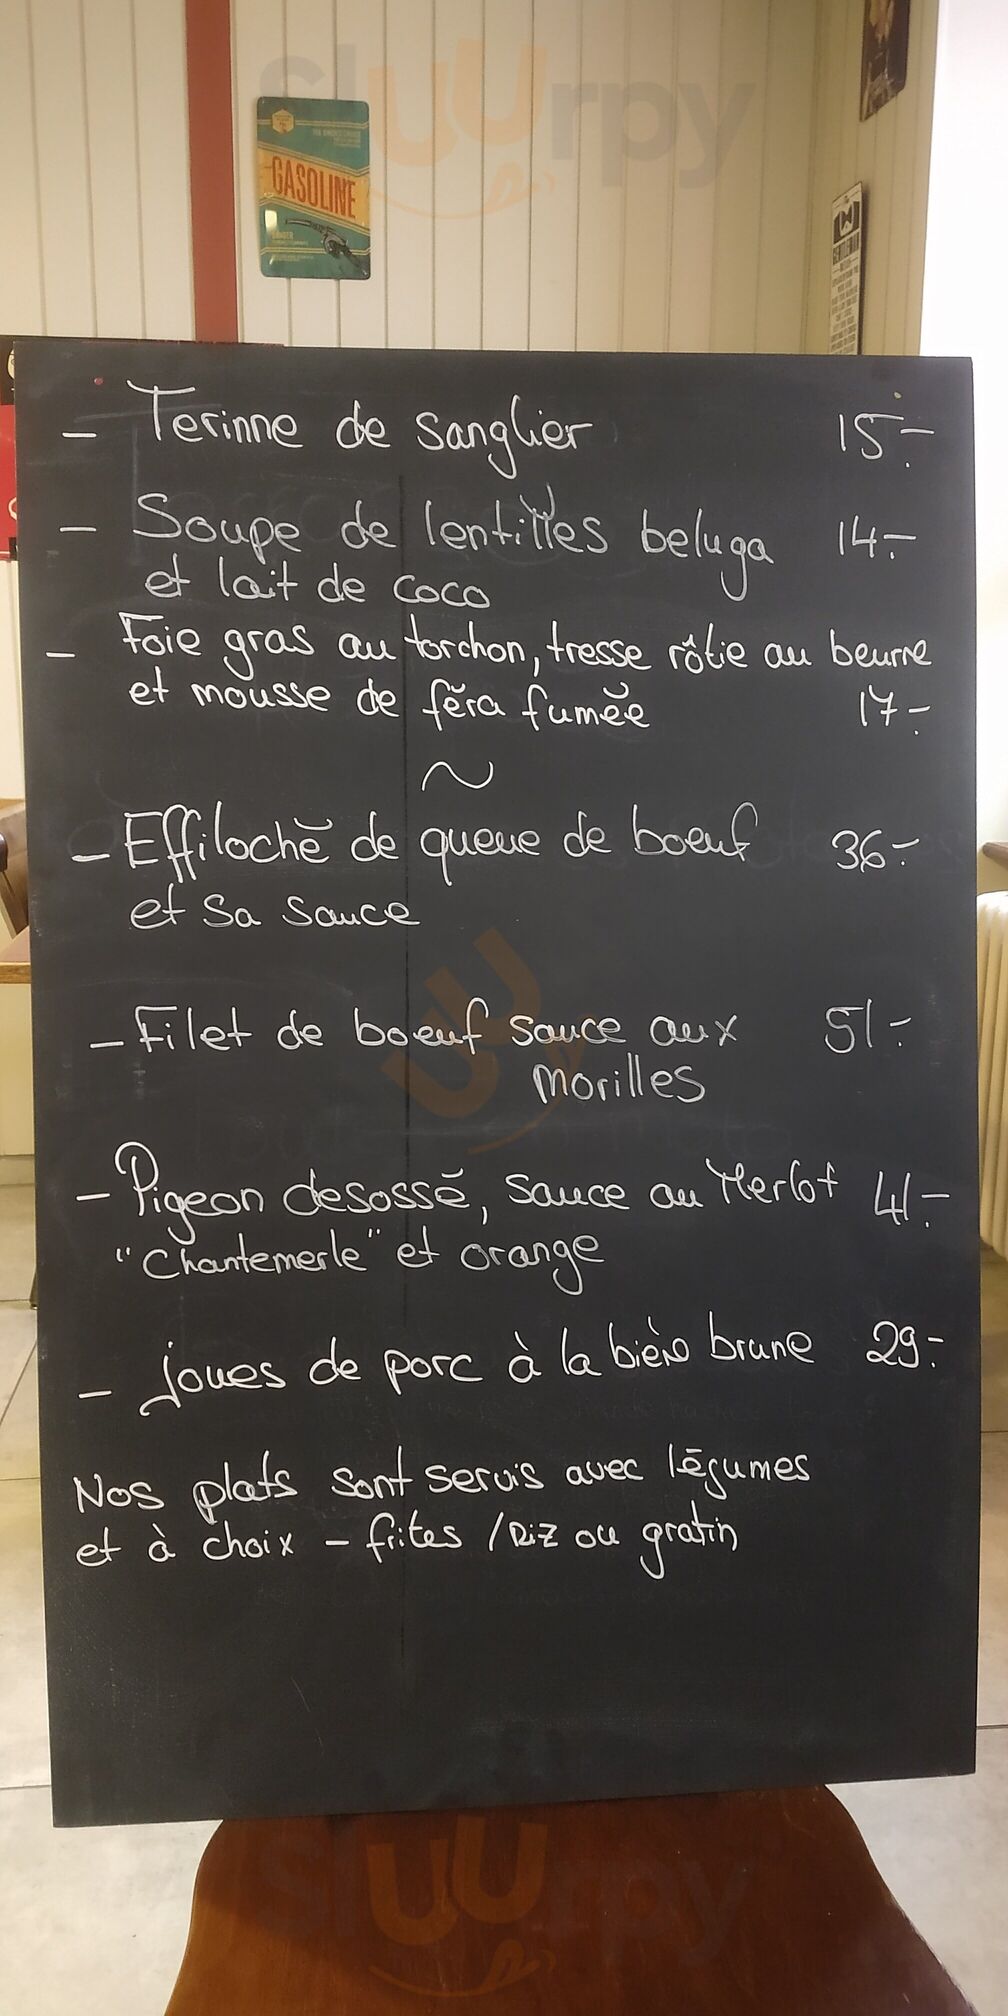 sluurpy
GASOLINE
GENTLEMAN
- Terinne de sanglier 15.-
- Soupe de lentilles beluga 14.-
et lait de coco
- Foie gras au torchon, tresse rôtie au beurre
et mousse de féra fumée 17.-
~
- Effiloché de queue de boeuf 36.-
et sa sauce
- Filet de boeuf sauce aux 51.-
morilles
- Pigeon desossé, sauce au Merlot 41.-
"Chantemerle" et orange
- joues de porc à la bière brune 29.-
Nos plats sont servis avec légumes
et à choix - frites / Riz ou gratin
sluurpy